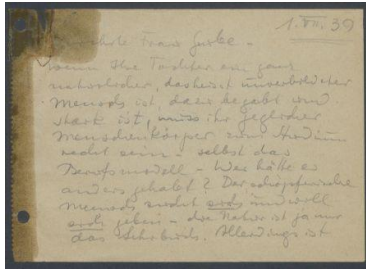 1. VII. 39
Verehrte Frau Guske –
wenn Ihre Tochter ein ganz
natürlicher, das heisst unverbildeter
Mensch ist, dazu begabt und
stark ist, muss ihr jeglicher
Menschenkörper zum Studium
recht sein – selbst das
Berufsmodell – Was hätte er
anders gehabt? Der schöpferische
Mensch sucht und will
geben – die Natur ist ja nur
das Lehrbuch. Allerdings ist